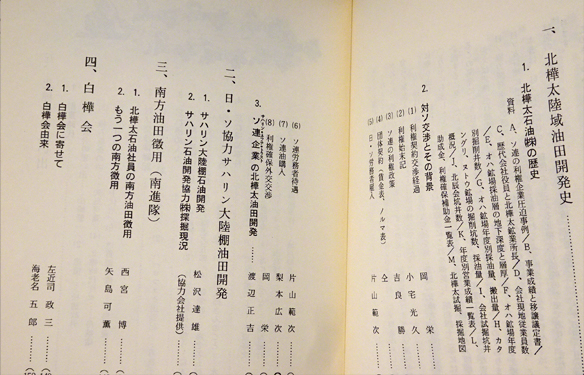 一、北樺太陸域油田開発史
1. 北樺太石油㈱の歴史
資料 A、ソ連の利権企業圧迫事例／B、事業成績と移譲議定書／
C、歴代会社役員と北樺太鉱業所長／D、会社現地従業員数
／E、オハ鉱場採油層の地下深度と層厚／F、オハ鉱場年度
別掘削井数／G、オハ鉱場年度別採油量、搬出量／H、カタ
ングリ、ヌトウ鉱場の掘削坑数、採油量／I、会社試掘坑井
概況／J、北辰会坑井数／K、年度別営業成績一覧表／L、
助成金、利権確保補助金一覧表／M、北樺太試掘、採掘地図
2. 対ソ交渉とその背景
(1) 利権契約交渉経過 岡 栄
(2) 利権始末記 小宅光久
(3) ソ連の利権政策 吉良勝
(4) 団体契約（賃金表、ノルマ表） 仝
(5) 日・ソ労務者雇入 片山範次
(6) ソ連労務者待遇 片山範次
(7) ソ連油購入 梨本広次
(8) 利権確保外交交渉 岡 栄
3. ソ連企業の北樺太油田開発 渡辺正吉
二、日・ソ協力サハリン大陸棚油田開発
1. サハリン大陸棚石油開発 松沢達雄
2. サハリン石油開発協力㈱採掘現況 （協力会社提供）
三、南方油田徴用（南進隊）
1. 北樺太石油社員の南方油田徴用 西宮 博
2. もう一つの南方徴用 矢島可薫
四、白樺会
1. 白樺会に寄せて 左近司政三
2. 白樺会由来 海老名五郎